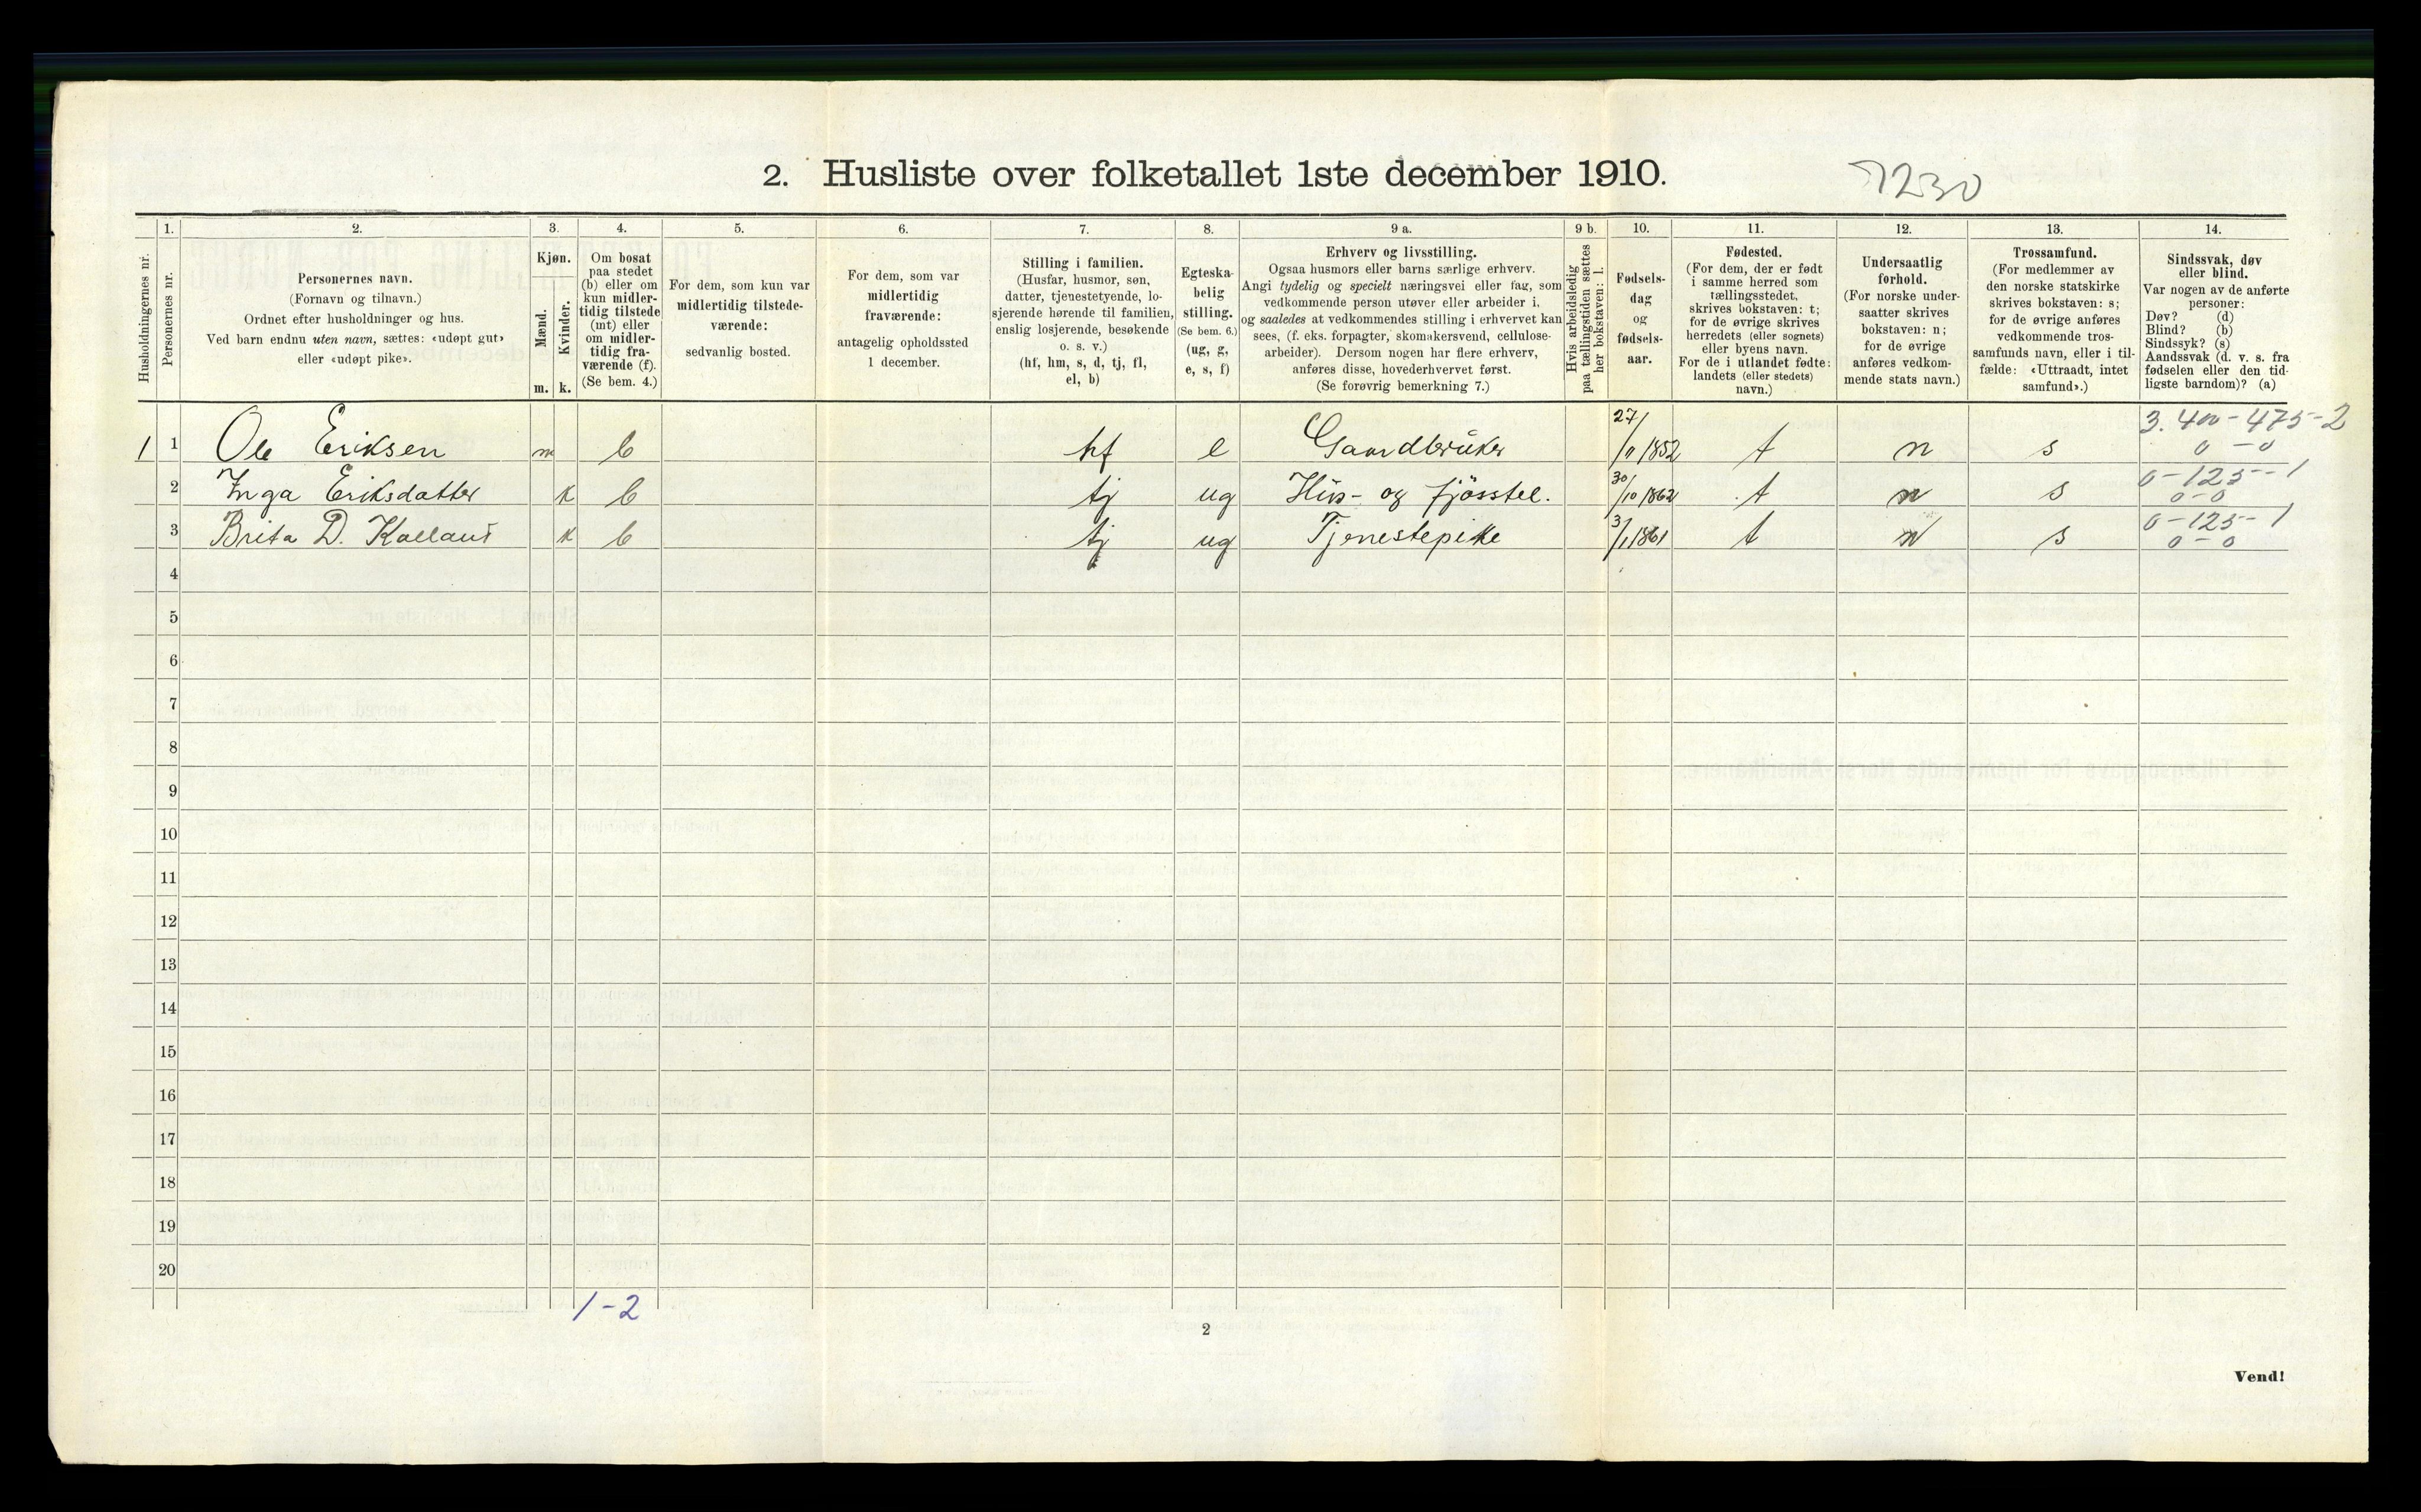 2. Husliste over folketallet 1ste december 1910.
7230
Husholdningernes nr.
1.
Personernes nr.
2.
Personernes navn.
(Fornavn og tilnavn.)
Ordnet efter husholdninger og hus.
Ved barn endnu uten navn, sættes: «udøpt gut»
eller «udøpt pike».
3.
Kjøn.
Mænd.
Kvinder.
m. k.
4.
Om bosat
paa stedet
(b) eller om
kun midler-
tidig tilstede
(mt) eller
om midler-
tidig fra-
værende (f).
(Se bem. 4.)
5.
For dem, som kun var
midlertidig tilstede-
værende:
sedvanlig bosted.
6.
For dem, som var
midlertidig
fraværende:
antagelig opholdssted
1 december.
7.
Stilling i familien.
(Husfar, husmor, søn,
datter, tjenestetyende, lo-
sjerende hørende til familien,
enslig losjerende, besøkende
o. s. v.)
(hf, hm, s, d, tj, fl,
el, b)
8.
Egteska-
belig
stilling.
(Se bem. 6.)
(ug, g,
e, s, f)
9 a.
Erhverv og livsstilling.
Ogsaa husmors eller barns særlige erhverv.
Angi tydelig og specielt næringsvei eller fag, som
vedkommende person utøver eller arbeider i,
og saaledes at vedkommendes stilling i erhvervet kan
sees, (f. eks. forpagter, skomakersvend, cellulose-
arbeider). Dersom nogen har flere erhverv,
anføres disse, hovederhvervet først.
(Se forøvrig bemerkning 7.)
9 b.
Hvis arbeidsledig
paa tællingstiden sættes
her bokstaven: l.
10.
Fødsels-
dag
og
fødsels-
aar.
11.
Fødested.
(For dem, der er født
i samme herred som
tællingsstedet,
skrives bokstaven: t;
for de øvrige skrives
herredets (eller sognets)
eller byens navn.
For de i utlandet fødte:
landets (eller stedets)
navn.)
12.
Undersaatlig
forhold.
(For norske under-
saatter skrives
bokstaven: n;
for de øvrige
anføres vedkom-
mende stats navn.)
13.
Trossamfund.
(For medlemmer av
den norske statskirke
skrives bokstaven: s;
for de øvrige anføres
vedkommende tros-
samfunds navn, eller i til-
fælde: «Uttraadt, intet
samfund».)
14.
Sindssvak, døv
eller blind.
Var nogen av de anførte
personer:
Døv? (d)
Blind? (b)
Sindssyk? (s)
Aandssvak (d. v. s. fra
fødselen eller den tid-
ligste barndom)? (a)
3.400-475-2
1 1 Ole Eriksen m b hf e Gaardbruker 27/11 1852 t n s 0-0
0-125-1
2 Inga Eriksdatter k b tj ug Hus- og fjösstel. 30/10 1862 t n s 0-0
0-125-1
3 Brita D. Kalland k b tj ug Tjenestepike 3/1 1861 t n s 0-0
4
5
6
7
8
9
10
11
12
13
14
15
16
17
18
19
20
1-2
2
Vend!